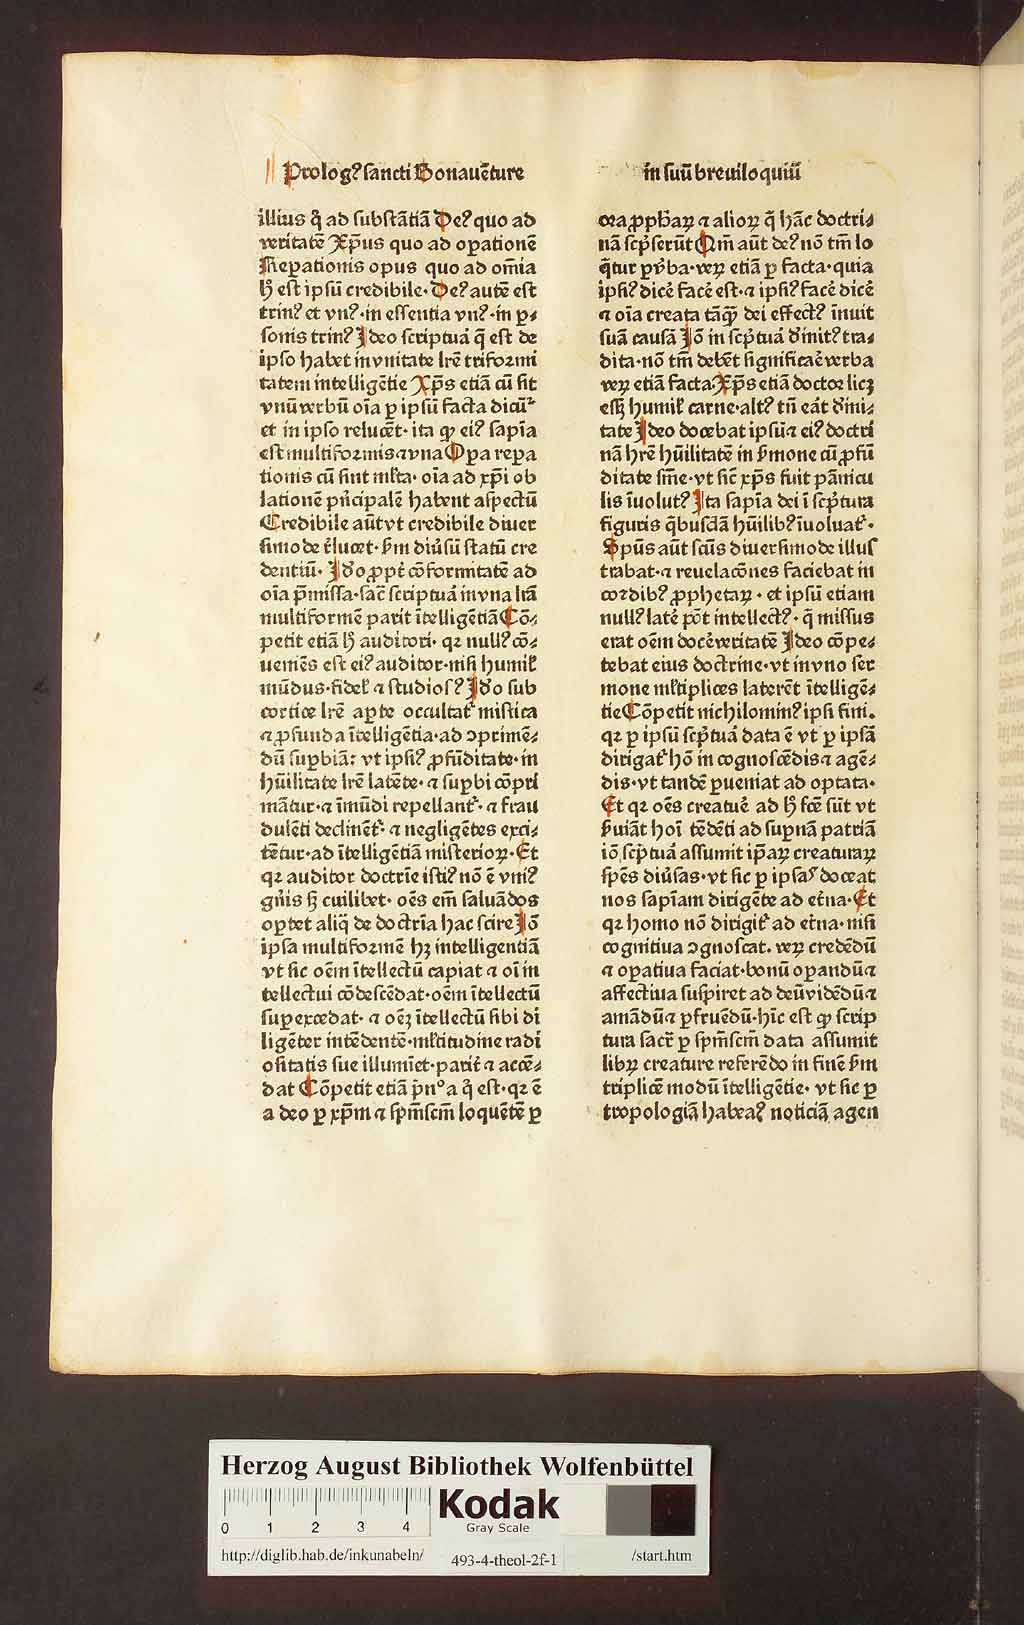 Prologꝰ sancti Bonauẽture
in suũ breuiloquiũ
illius q̃ ad substãtiã Deꝰ quo ad
veritatẽ Xp̃us quo ad oꝑationẽ
Reꝑationis opus quo ad om̃ia
h̃ est ipsũ credibile· Deꝰ autẽ est
trinꝰ et vnꝰ· in essentia vnꝰ· in ꝑ⸗
sonis trinꝰ Ideo scriptuȧ q̃ est de
ipso habet invnitate lr̃e triformi
tatem intelligẽtie Xp̃s etiã cũ sit
vnũ verbũ oĩa ꝑ ipsũ facta dicũt᷑
et in ipso relucẽt· ita ꝙ eiꝰ sapĩa
est multiformis ⁊ vna Oꝑa reꝑa
tionis cũ sint ml̃ta· oĩa ad xp̃i ob
lationẽ pñcipalẽ habent aspectũ
Credibile aũt vt credibile diuer
simode r̃lucet· ẜm diũsũ statũ cre
dentiũ· Ido ꝓpt̃ cõformitatẽ ad
oĩa p̃missa· sac̃ scriptuȧ in vna lr̃ã
multiformẽ parit ĩtelligẽtiã Cõ⸗
petit etiã h̃ auditori· qꝛ nullꝰ cõ⸗
ueniẽs est eiꝰ auditor· nisi humil̃
mũdus· fidel̃ ⁊ studiosꝰ Ido sub
cortice lr̃e aꝑte occultat᷑ mistica
⁊ ꝓfunda ĩtelligẽtia· ad ↄprimẽ⸗
dũ suꝑbiã: vt ipsiꝰ ꝓfũditate· in
hũilitate lr̃e latẽte· ⁊ suꝑbi cõpri
mãtur· ⁊ ĩmũdi repellant᷑· ⁊ frau
dulẽti declinẽt᷑· ⁊ negligẽtes exci⸗
tẽtur· ad ĩtelligẽtiã misterioꝝ· Et
qꝛ auditor doctrĩe istiꝰ nõ ẽ vniꝰ
gñis sꝫ cuilibet· oẽs em̃ saluãdos
oꝑtet aliq̃ de doctrĩa hac scire Iõ
ipsa multiformẽ hꝫ intelligentiã
vt sic oẽm ĩtellectũ capiat ⁊ oĩ in
tellectui cõdescẽdat· oẽm ĩtellectũ
suꝑexcedat· ⁊ oẽꝫ ĩtellectũ sibi di
ligẽter intẽdentẽ· ml̃titudine radi
ositatis sue illumiẽt· parit̃ ⁊ accẽ⸗
dat Cõpetit etiã p̃nᵒ a q̃ est· qꝛ ẽ
a deo ꝑ xp̃m ⁊ sp̃m scm̃ loquẽtẽ ꝑ
ora ꝓph̃aꝝ ⁊ alioꝝ q̃ hãc doctri⸗
nã scp̃serũt Qm̃ aũt deꝰ nõ tm̃ lo
q̃tur ꝑ v̉ba· veꝝ etiã ꝑ facta· quia
ipsiꝰ dicẽ facẽ est· ⁊ ipsiꝰ facẽ dicẽ
⁊ oĩa creata tãꝙ̃ dei effectꝰ ĩnuit
suã causã Iõ in scp̃tuȧ d̉initꝰ tra⸗
dita· nõ tm̃ debẽt significaẽ verba
veꝝ etiã facta· Xp̃s etiã doctor licꝫ
essꝫ humil̃ carne· altꝰ tñ eȧt d̉ini⸗
tate Ideo docebat ipsũ ⁊ eiꝰ doctri
nã hr̃e hũilitatẽ in ẜmone cũ ꝓfũ
ditate sm̃e· vt sic̃ xp̃s fuit pãnicu
lis ĩuolutꝰ Ita sapĩa dei ĩ scp̃tura
figuris q̃busdã hũilibꝰ ĩuoluat᷑·
Spũs aũt scũs diuersimode illus
trabat· ⁊ reuelacõnes faciebat in
cordibꝰ ꝓphetaꝝ· et ipsũ etiam
nullꝰ latẽ põt intellectꝰ· q̃ missus
erat oẽm docẽ veritatẽ Ideo cõpe⸗
tebat eius doctrine· vt in vno ser
mone ml̃tiplices laterẽt ĩtelligẽ⸗
tie Cõpetit nichilominꝰ ipsi fini.
qꝛ ꝑ ipsũ scp̃tuȧ data ẽ vt ꝑ ipsã
dirigat᷑ hõ in cognoscẽdis ⁊ agẽ⸗
dis· vt tandẽ ꝑueniat ad optata·
Et qꝛ oẽs creatuẽ ad h̃ fcẽ sũt vt
ẜuiãt hoĩ tẽdẽti ad suꝑnã patriã
iõ scp̃tuȧ assumit ip̃aꝝ creaturaꝝ
sp̃es diũsas· vt sic ꝑ ipsas doceat
nos sapĩam dirigẽte ad et̃na· Et
qꝛ homo nõ dirigit᷑ ad et̃na· nisi
cognitiua ↄgnoscat. veꝝ credẽdũ
⁊ oꝑatiua faciat· bonũ oꝑandũ ⁊
affectiua suspiret ad deũ vidẽdũ ⁊
amãdũ ⁊ ꝑfruẽdũ· hĩc est ꝙ scrip
tura sacr̃ ꝑ sp̃m scm̃ data assumit
libꝝ creature referẽdo in finẽ ẜm
triplicẽ modũ ĩtelligẽtie· vt sic ꝑ
tropologiã habeaꝰ noticiã agen
Herzog August Bibliothek Wolfenbüttel
0 1 2 3 4
Kodak
Gray Scale
http://diglib.hab.de/inkunabeln/ 493-4-theol-2f-1 /start.htm